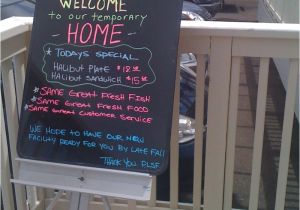 WELCOME
to our temporary
HOME
TODAYS SPECIAL
HALIBUT PLATE
HALIBUT SANDWICH
*SAME GREAT FRESH FISH
*SAME GREAT FRESH FOOD
*SAME GREAT CUSTOMER SERVICE
WE HOPE TO HAVE OUR NEW
FACILITY READY FOR YOU BY LATE FALL
THANK YOU